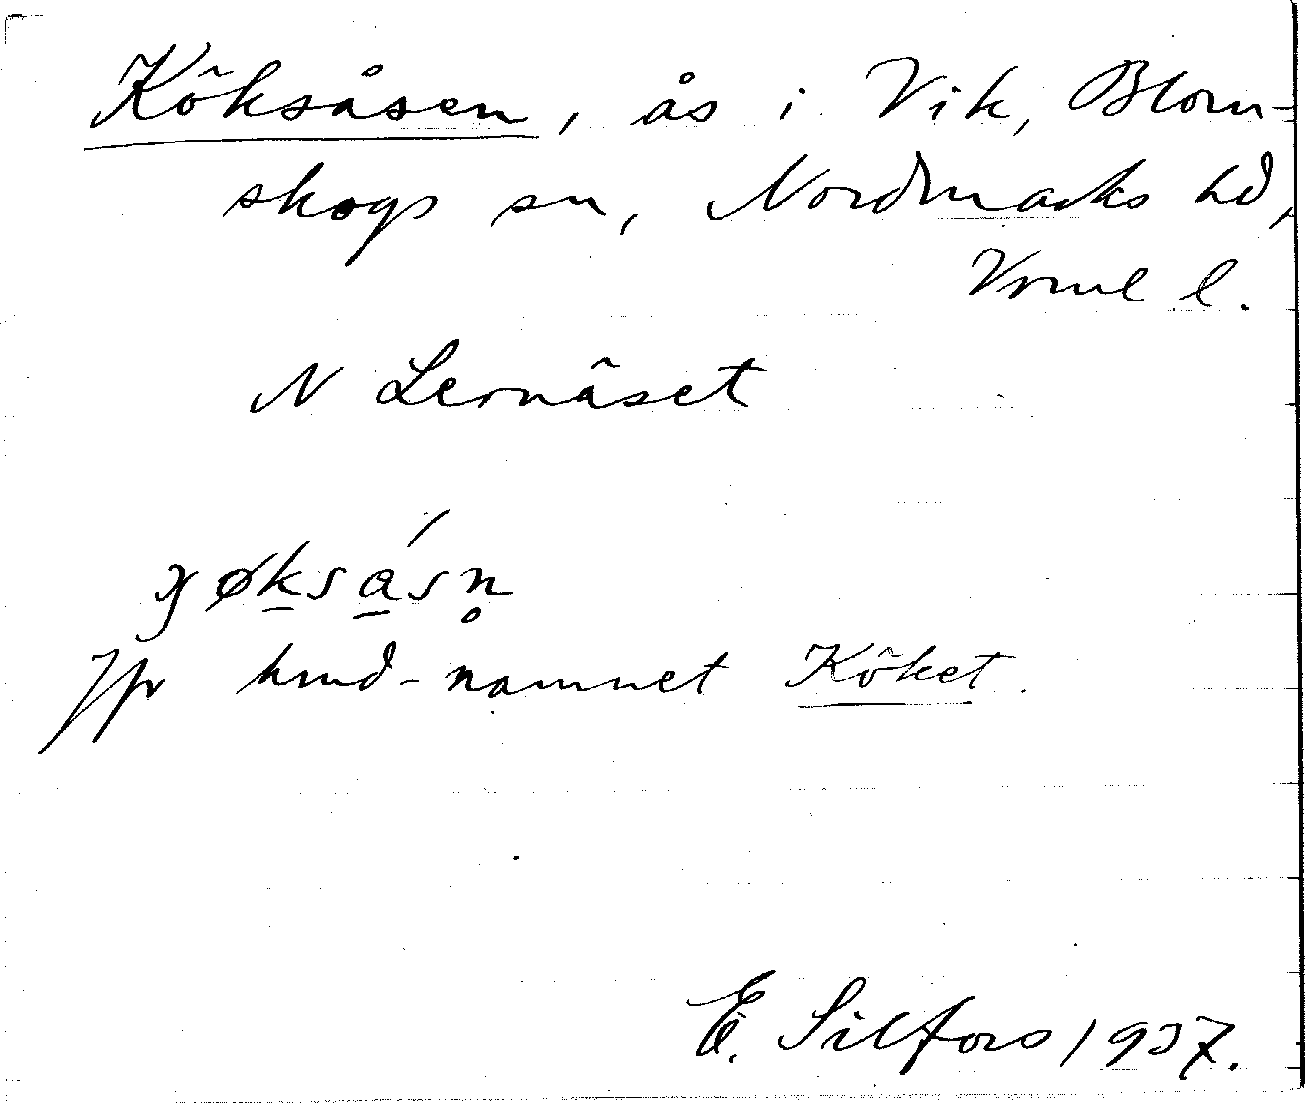 Köksåsen, ås i Vik, Blom-
skogs sn, Nordmarks hd,
Vrml l.
N Lernäset
Jfr hmd-namnet Köket.
E. Silfors 1937.